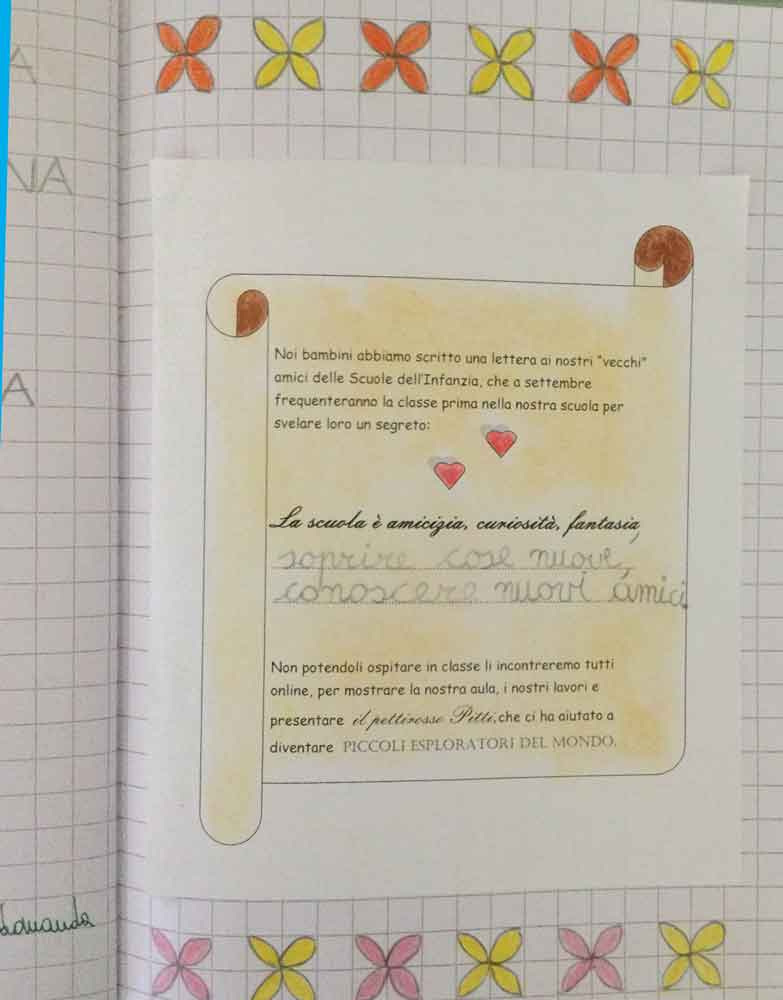 A
NA
A
Noi bambini abbiamo scritto una lettera ai nostri "vecchi"
amici delle Scuole dell'Infanzia, che a settembre
frequenteranno la classe prima nella nostra scuola per
svelare loro un segreto:
La scuola è amicizia, curiosità, fantasia,
soprire cose nuove,
conoscere nuovi amici.
Non potendoli ospitare in classe li incontreremo tutti
online, per mostrare la nostra aula, i nostri lavori e
presentare il pettirosso Pitti, che ci ha aiutato a
diventare PICCOLI ESPLORATORI DEL MONDO.